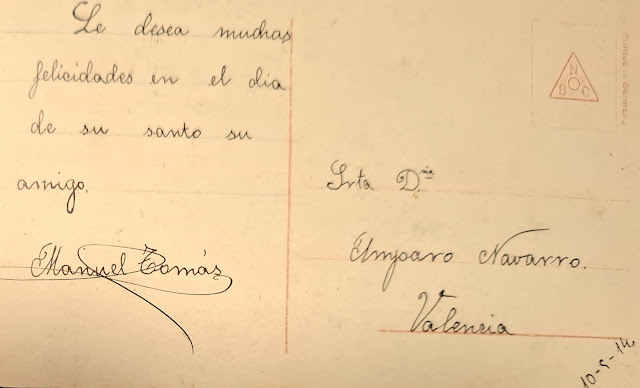 Le desea muchas
felicidades en el dia
de su santo su
amigo.
Manuel Tomás
Srta Dña
Amparo Navarro.
Valencia
10-5-14
N
B O C
Printed in Germany